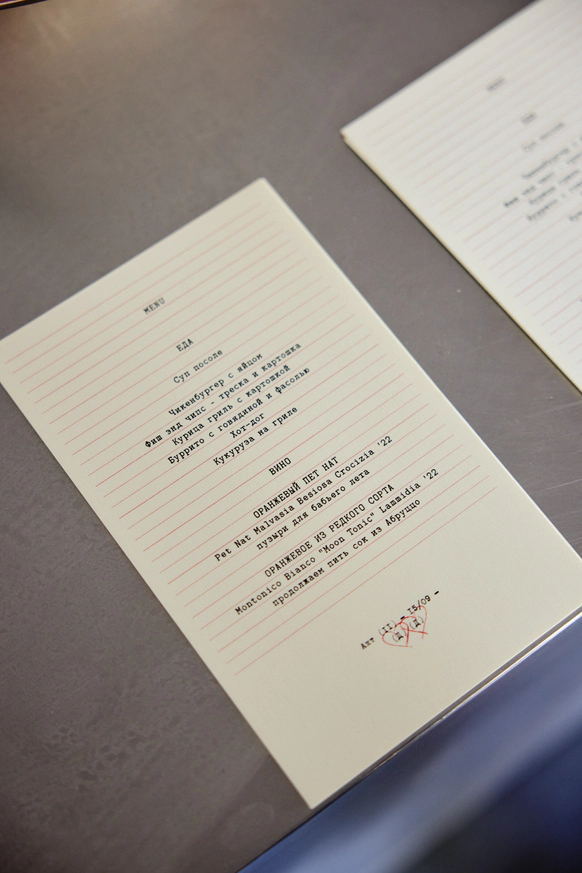 MENU
ЕДА
Суп посоле
Чикенбургер с яйцом
Фиш энд чипс - треска и картошка
Курица гриль с картошкой
Буррито с говядиной и фасолью
Хот-дог
Кукуруза на гриле
ВИНО
ОРАНЖЕВЫЙ ПЕТ НАТ
Pet Nat Malvasia Besiosa Crocizia '22
пузыри для бабьего лета
ОРАНЖЕВОЕ ИЗ РЕДКОГО СОРТА
Montonico Bianco "Moon Tonic" Lammidia '22
продолжаем пить сок из Абруццо
Акт (II) - 15/09 -
(Д) (Д)